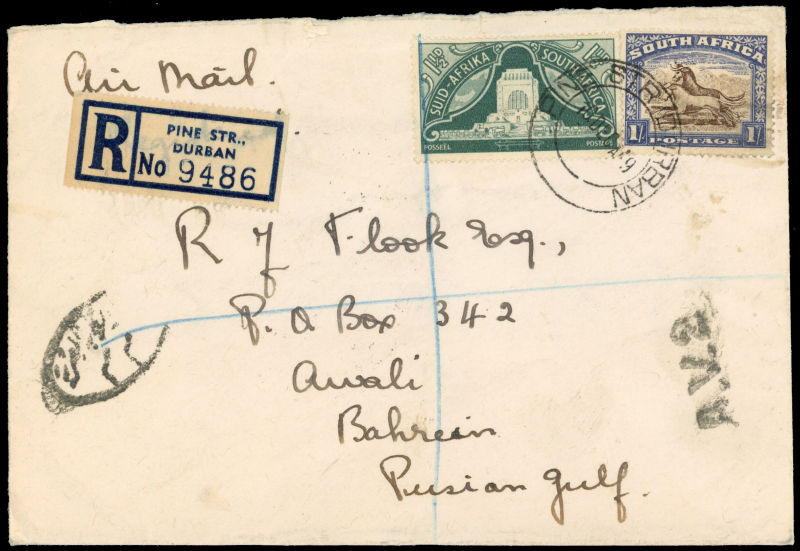 Air Mail.
R
PINE STR.,
DURBAN
No 9486
1½D 1½D
SUID-AFRIKA SOUTH AFRICA
POSSEËL POSTAGE
SOUTH AFRICA
1/- 1/-
POSTAGE
DURBAN
R J Flook Esq.,
P. O Box 342
Awali
Bahrein
Persian Gulf.
A.V.2